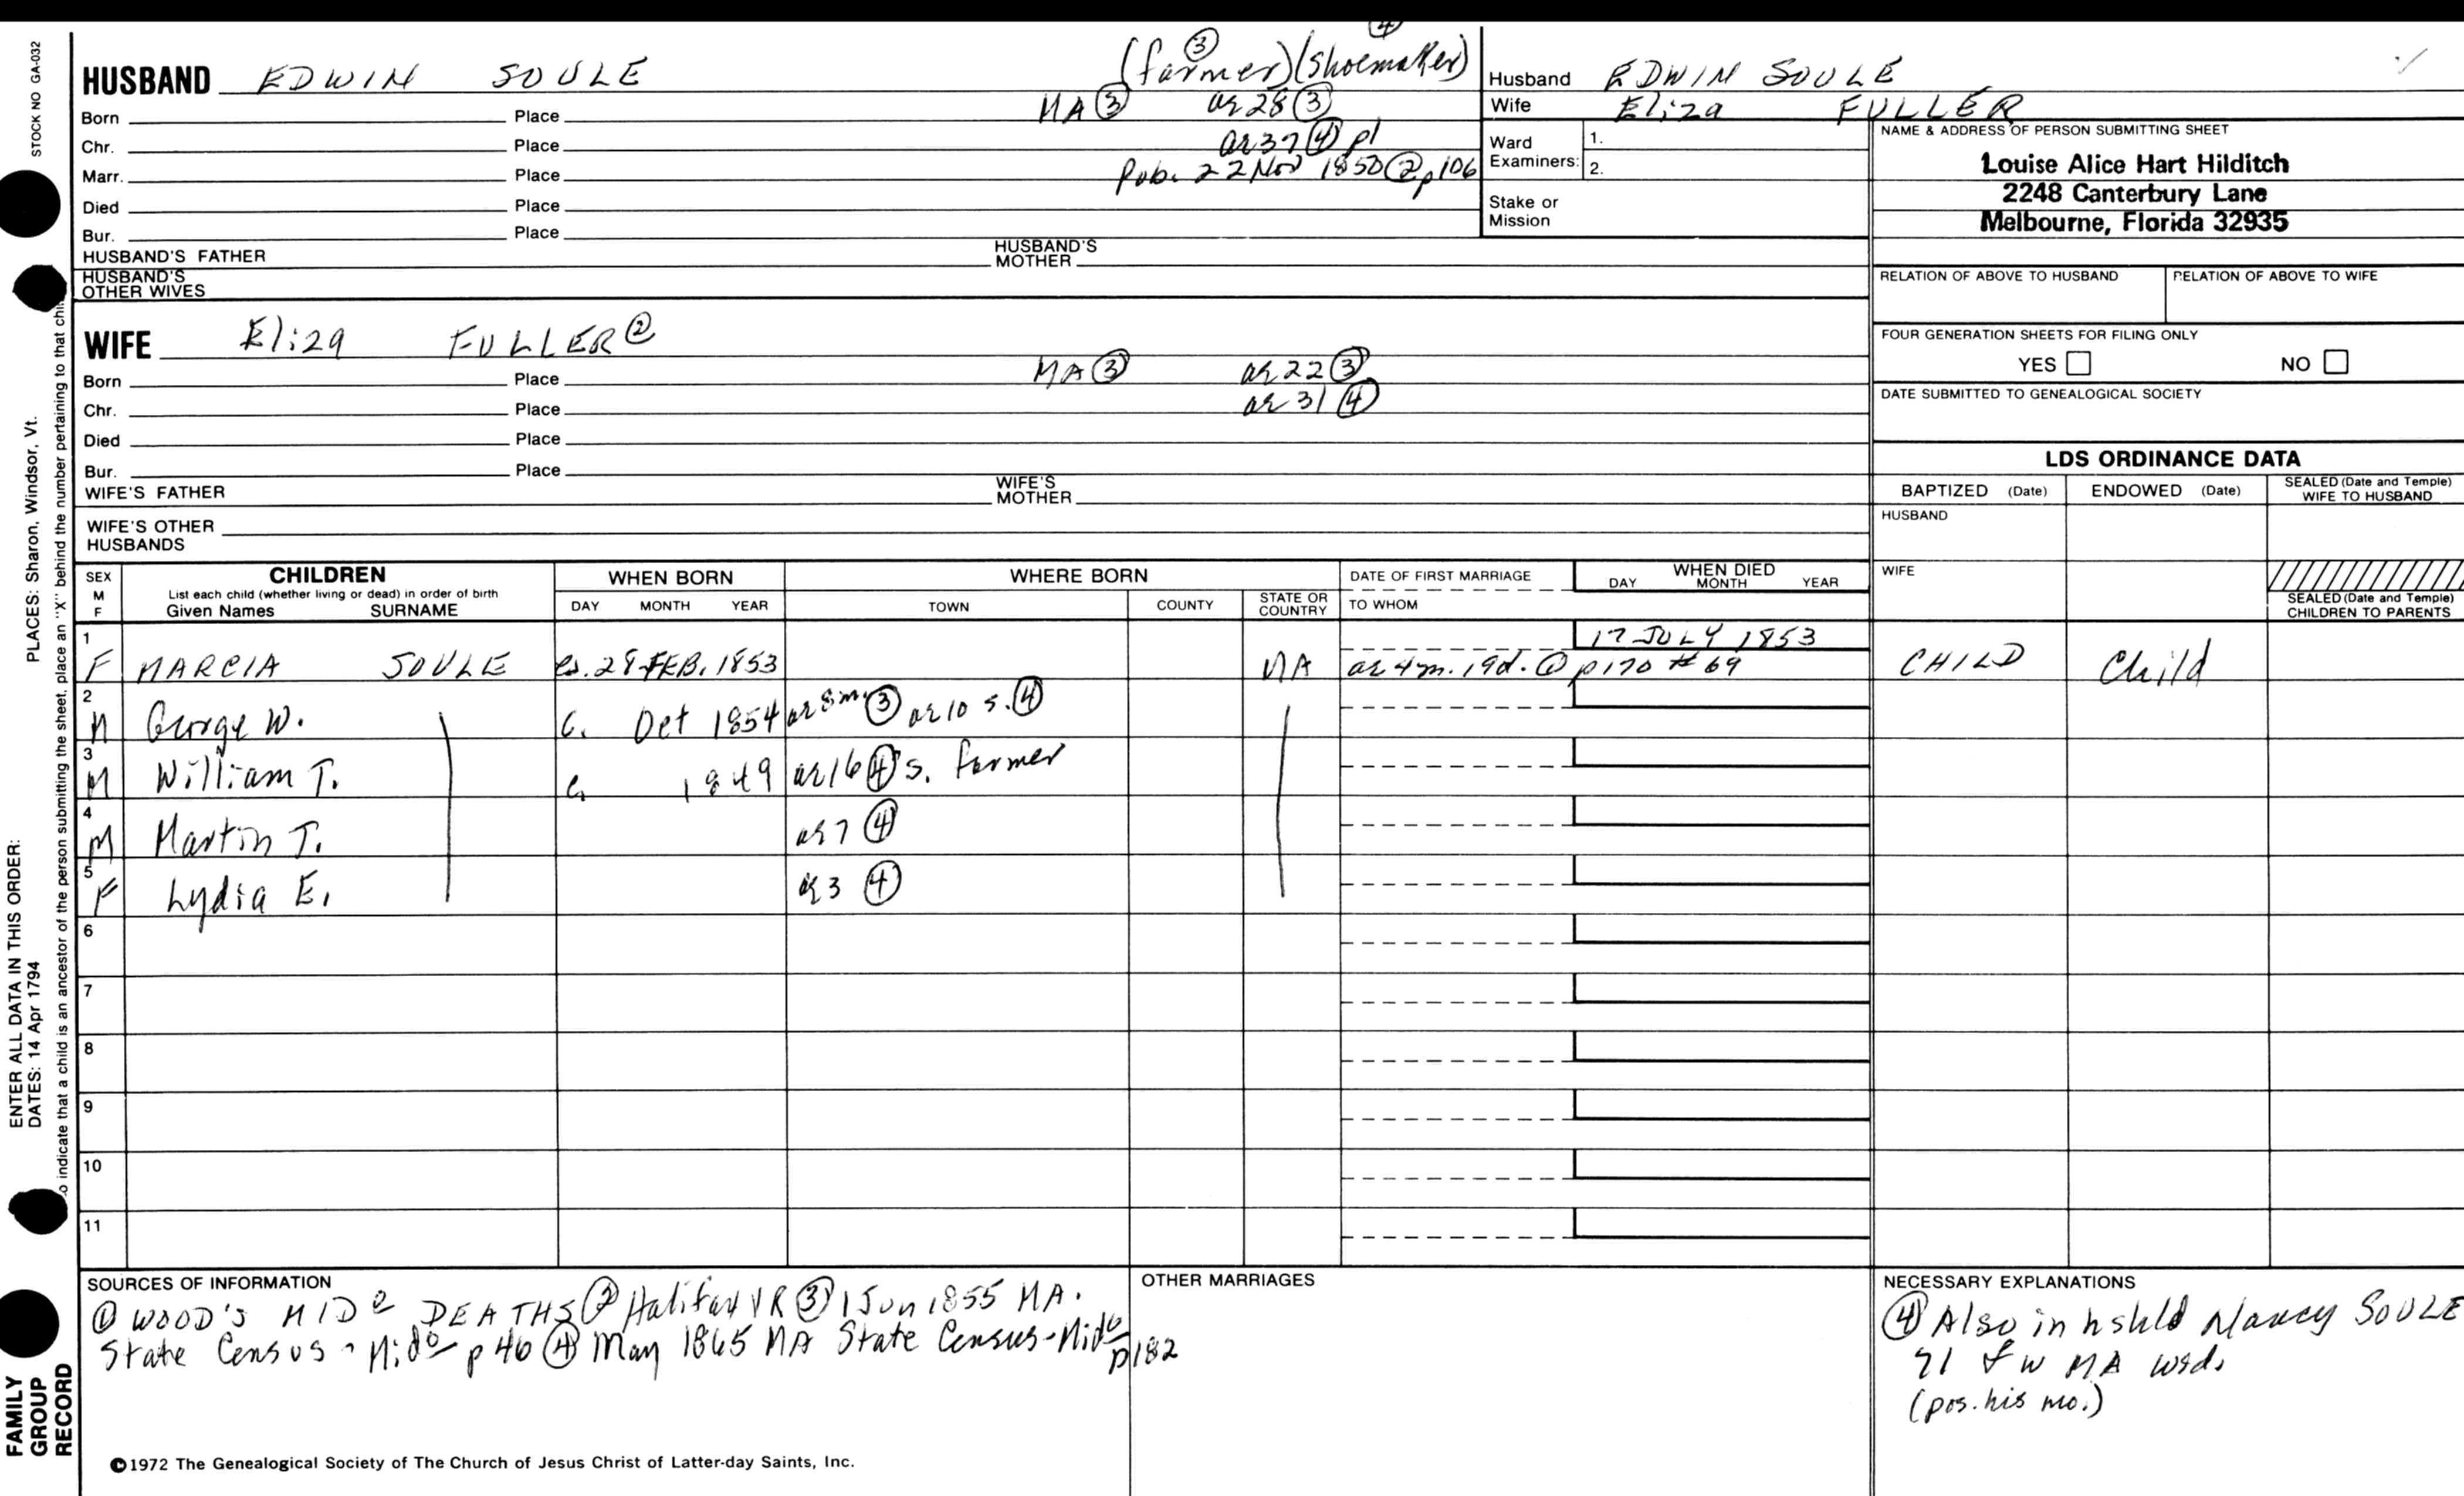 STOCK NO GA-032
HUSBAND EDWIN SOULE (farmer) ③ (shoemaker) ④
Born Place MA ③ ae 28 ③
Chr. Place ae 37 ④ pl
Marr. Place Pub. 22 Nov 1850 ② p106
Died Place
Bur. Place
HUSBAND'S FATHER HUSBAND'S MOTHER
HUSBAND'S OTHER WIVES
WIFE Eliza FULLER ②
Born Place MA ③ ae 22 ③
Chr. Place ae 31 ④
Died Place
Bur. Place
WIFE'S FATHER WIFE'S MOTHER
WIFE'S OTHER HUSBANDS
Husband EDWIN SOULE
Wife Eliza FULLER
Ward Examiners: 1.
2.
Stake or Mission
NAME & ADDRESS OF PERSON SUBMITTING SHEET
Louise Alice Hart Hilditch
2248 Canterbury Lane
Melbourne, Florida 32935
RELATION OF ABOVE TO HUSBAND RELATION OF ABOVE TO WIFE
FOUR GENERATION SHEETS FOR FILING ONLY
YES NO
DATE SUBMITTED TO GENEALOGICAL SOCIETY
LDS ORDINANCE DATA
BAPTIZED (Date) ENDOWED (Date) SEALED (Date and Temple) WIFE TO HUSBAND
HUSBAND
WIFE
SEALED (Date and Temple) CHILDREN TO PARENTS
SEX M F
CHILDREN
List each child (whether living or dead) in order of birth
Given Names SURNAME
WHEN BORN
DAY MONTH YEAR
WHERE BORN
TOWN COUNTY STATE OR COUNTRY
DATE OF FIRST MARRIAGE
TO WHOM
WHEN DIED
DAY MONTH YEAR
1 17 JULY 1853
F MARCIA SOULE 28 FEB. 1853 MA ae 4m. 19d. ① p170 # 69 CHILD Child
2 M George W. c. Oct 1854 ae 8m ③ ae 10 s. ④
3 M William T. c. 1849 ae 16 ④ s. farmer
4 M Martin T. ae 7 ④
5 F Lydia E. ae 3 ④
6
7
8
9
10
11
SOURCES OF INFORMATION
① WOOD'S MIDº DEATHS ② Halifax VR ③ 1 Jun 1855 MA.
State Census - Midº p 46 ④ May 1865 MA State Census - Midº
p182
OTHER MARRIAGES
NECESSARY EXPLANATIONS
④ Also in hshld Nancy SOULE
71 f w MA wid.
(pos. his mo.)
©1972 The Genealogical Society of The Church of Jesus Christ of Latter-day Saints, Inc.
FAMILY GROUP RECORD
ENTER ALL DATA IN THIS ORDER:
DATES: 14 Apr 1794
PLACES: Sharon, Windsor, Vt.
indicate that a child is an ancestor of the person submitting the sheet, place an "X" behind the number pertaining to that